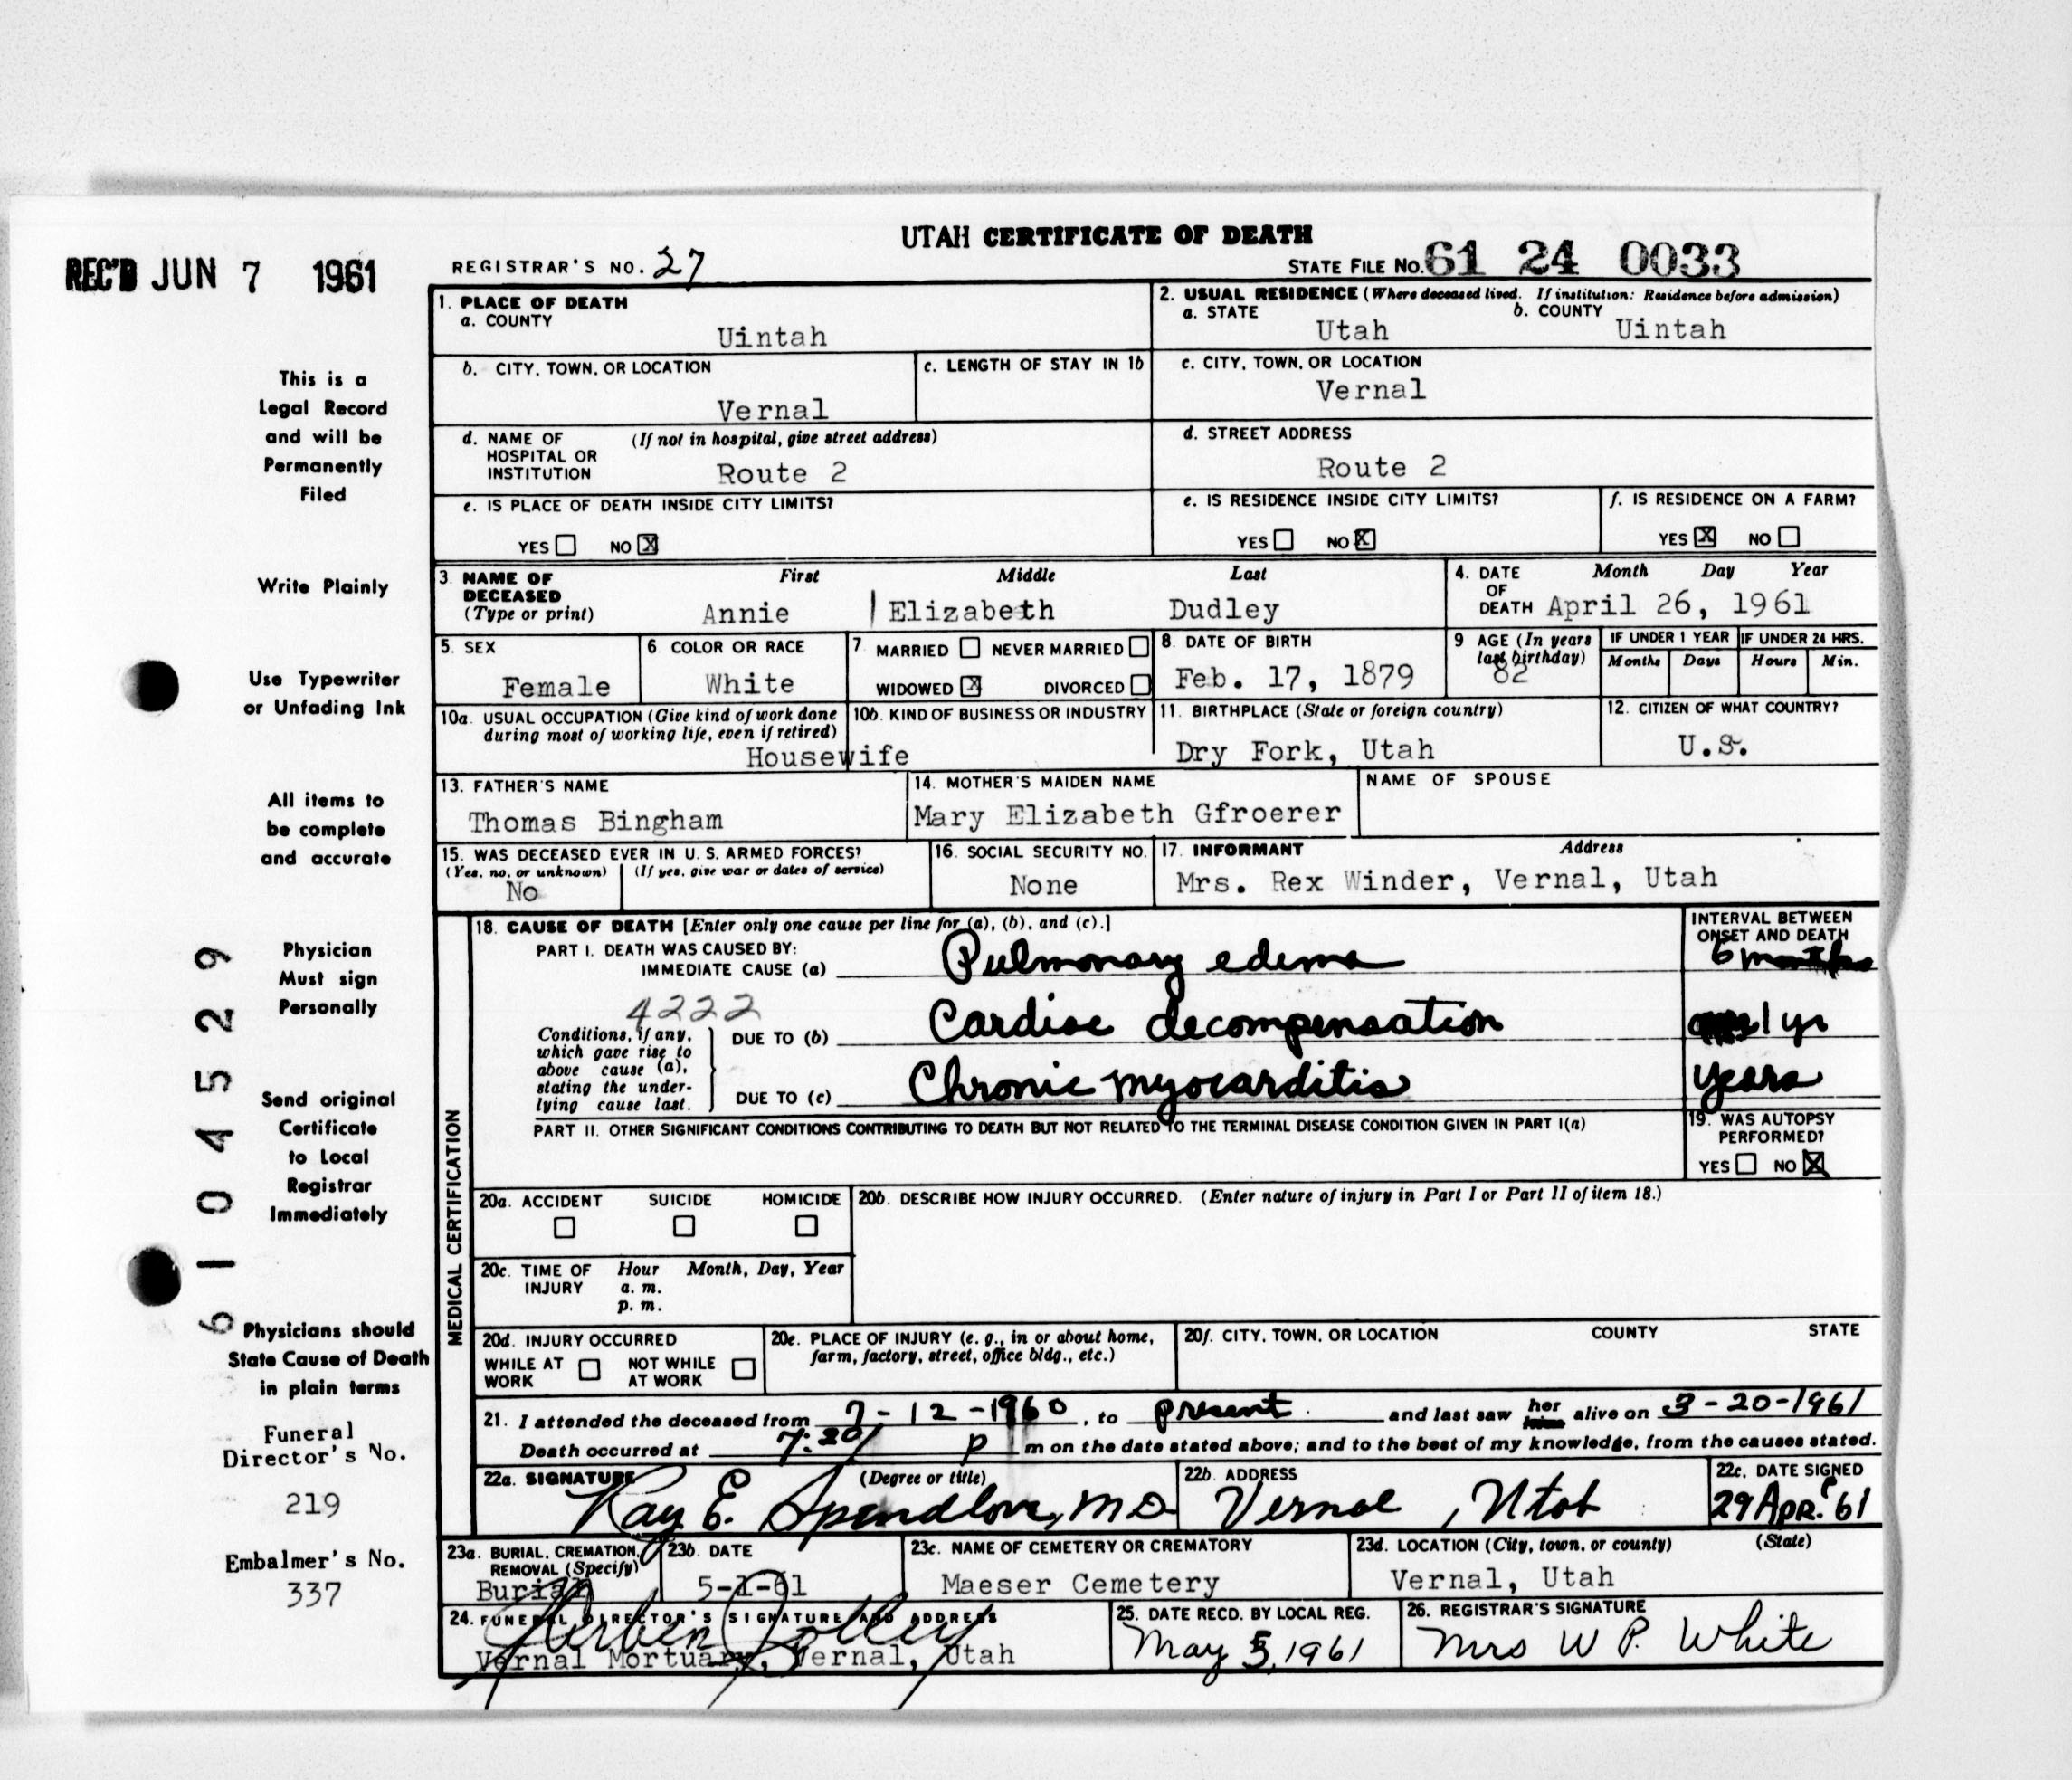 UTAH CERTIFICATE OF DEATH
REC'D JUN 7 1961
REGISTRAR'S NO. 27
STATE FILE NO. 61 24 0033
This is a
Legal Record
and will be
Permanently
Filed
Write Plainly
Use Typewriter
or Unfading Ink
All items to
be complete
and accurate
Physician
Must sign
Personally
Send original
Certificate
to Local
Registrar
Immediately
Physicians should
State Cause of Death
in plain terms
Funeral
Director's No.
219
Embalmer's No.
337
61045529
1. PLACE OF DEATH
a. COUNTY
Uintah
2. USUAL RESIDENCE (Where deceased lived. If institution: Residence before admission)
a. STATE
Utah
b. COUNTY
Uintah
b. CITY, TOWN, OR LOCATION
Vernal
c. LENGTH OF STAY IN 1b
c. CITY, TOWN, OR LOCATION
Vernal
d. NAME OF HOSPITAL OR INSTITUTION
(If not in hospital, give street address)
Route 2
d. STREET ADDRESS
Route 2
e. IS PLACE OF DEATH INSIDE CITY LIMITS?
YES NO X
e. IS RESIDENCE INSIDE CITY LIMITS?
YES NO X
f. IS RESIDENCE ON A FARM?
YES X NO
3. NAME OF DECEASED
(Type or print)
First Middle Last
Annie Elizabeth Dudley
4. DATE OF DEATH
Month Day Year
April 26, 1961
5. SEX
Female
6 COLOR OR RACE
White
7 MARRIED NEVER MARRIED
WIDOWED X DIVORCED
8. DATE OF BIRTH
Feb. 17, 1879
9 AGE (In years last birthday)
82
IF UNDER 1 YEAR
Months Days
IF UNDER 24 HRS.
Hours Min.
10a. USUAL OCCUPATION (Give kind of work done during most of working life, even if retired)
Housewife
10b. KIND OF BUSINESS OR INDUSTRY
11. BIRTHPLACE (State or foreign country)
Dry Fork, Utah
12. CITIZEN OF WHAT COUNTRY?
U.S.
13. FATHER'S NAME
Thomas Bingham
14. MOTHER'S MAIDEN NAME
Mary Elizabeth Gfroerer
NAME OF SPOUSE
15. WAS DECEASED EVER IN U. S. ARMED FORCES?
(Yes, no, or unknown) (If yes, give war or dates of service)
No
16. SOCIAL SECURITY NO.
None
17. INFORMANT Address
Mrs. Rex Winder, Vernal, Utah
MEDICAL CERTIFICATION
18. CAUSE OF DEATH [Enter only one cause per line for (a), (b), and (c).]
INTERVAL BETWEEN ONSET AND DEATH
PART I. DEATH WAS CAUSED BY:
IMMEDIATE CAUSE (a) Pulmonary edema
6 months
4222
Conditions, if any, which gave rise to above cause (a), stating the underlying cause last.
DUE TO (b) Cardiac decompensation
1 yr
DUE TO (c) Chronic myocarditis
years
PART II. OTHER SIGNIFICANT CONDITIONS CONTRIBUTING TO DEATH BUT NOT RELATED TO THE TERMINAL DISEASE CONDITION GIVEN IN PART I(a)
19. WAS AUTOPSY PERFORMED?
YES NO X
20a. ACCIDENT SUICIDE HOMICIDE
20b. DESCRIBE HOW INJURY OCCURRED. (Enter nature of injury in Part I or Part II of item 18.)
20c. TIME OF INJURY
Hour Month, Day, Year
a. m.
p. m.
20d. INJURY OCCURRED
WHILE AT WORK NOT WHILE AT WORK
20e. PLACE OF INJURY (e. g., in or about home, farm, factory, street, office bldg., etc.)
20f. CITY, TOWN, OR LOCATION COUNTY STATE
21. I attended the deceased from 7-12-1960, to present and last saw her alive on 3-20-1961
Death occurred at 7:20 p m on the date stated above; and to the best of my knowledge, from the causes stated.
22a. SIGNATURE (Degree or title)
Ray E. Spendlove, MD
22b. ADDRESS
Vernal, Utah
22c. DATE SIGNED
29 Apr. 61
23a. BURIAL, CREMATION, REMOVAL (Specify)
Burial
23b. DATE
5-1-61
23c. NAME OF CEMETERY OR CREMATORY
Maeser Cemetery
23d. LOCATION (City, town, or county) (State)
Vernal, Utah
24. FUNERAL DIRECTOR'S SIGNATURE AND ADDRESS
Jolley
Vernal Mortuary, Vernal, Utah
25. DATE RECD. BY LOCAL REG.
May 5, 1961
26. REGISTRAR'S SIGNATURE
Mrs W P. White